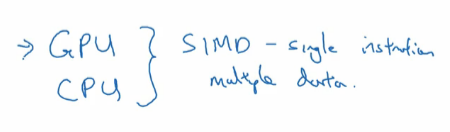 → GPU } SIMD - single instruction
CPU } multiple data.